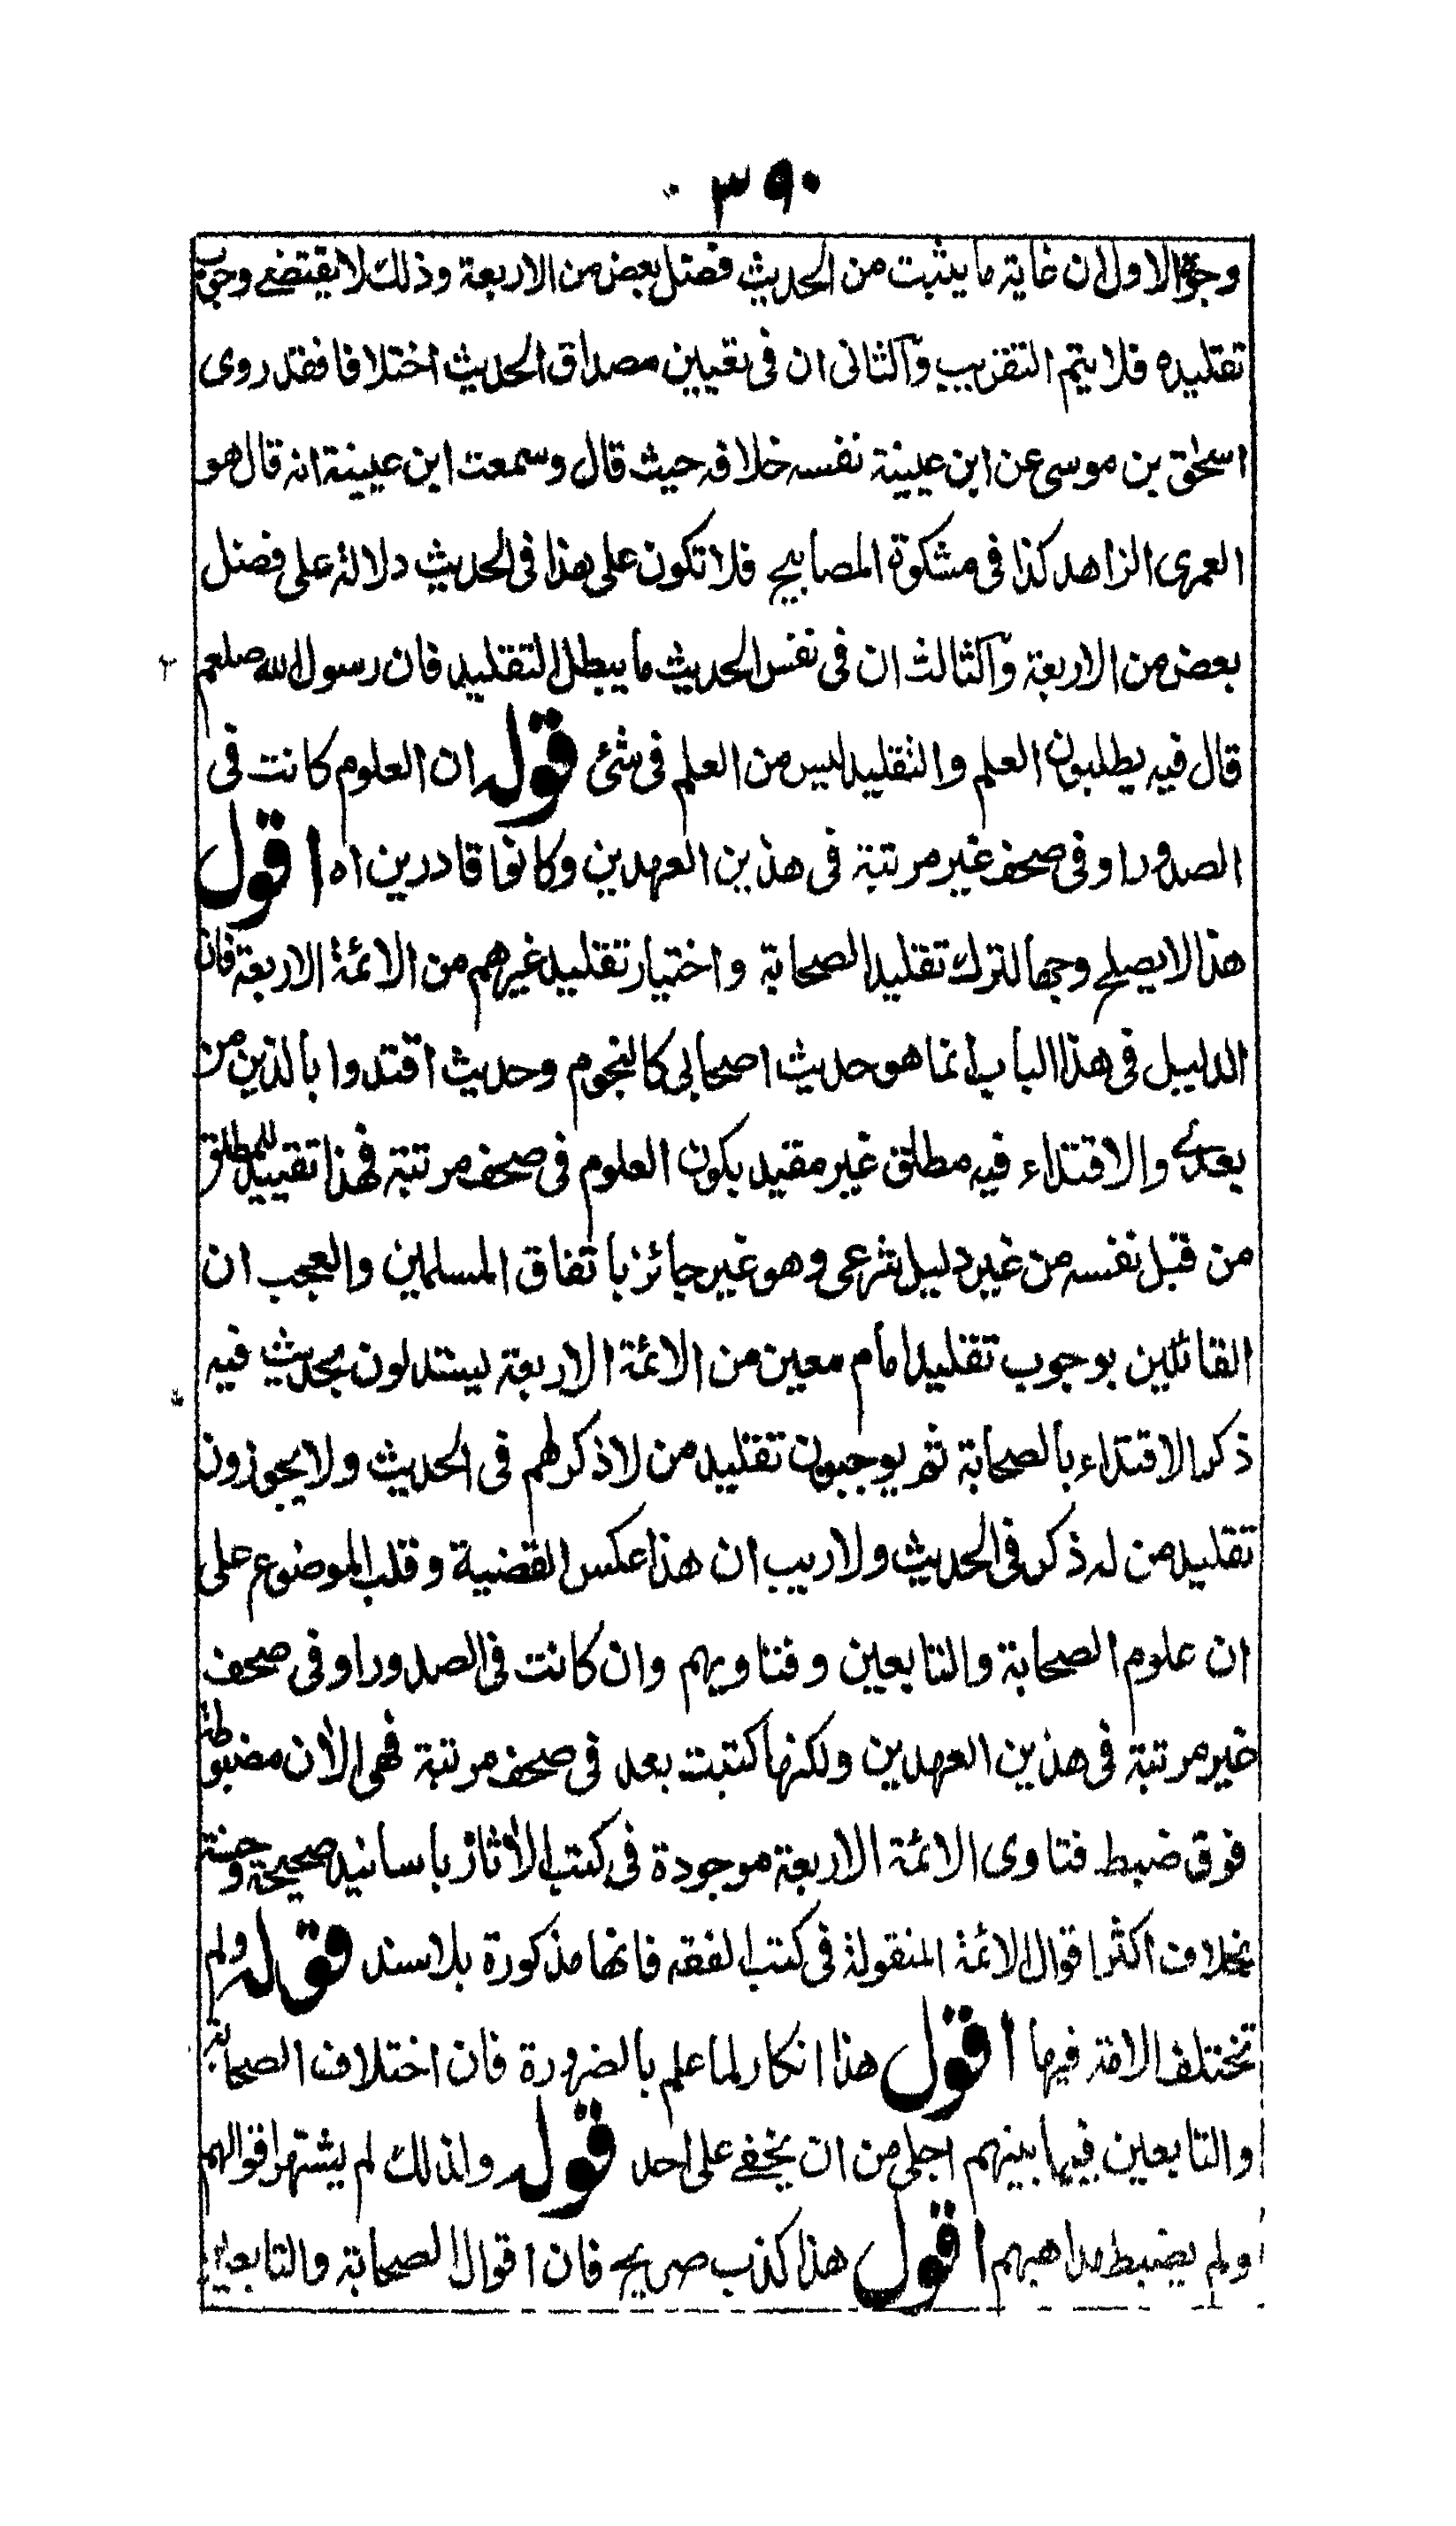 ٣٩٠
وجوه الاول ان غاية ما يثبت من الحديث فضل بعض من الاربعة وذلك لا يقتضے وجوب
تقليده فلا يتم التقريب والثانى ان فى تعيين مصداق الحديث اختلافا فقد روى
اسحٰق بن موسى عن ابن عيينة نفسه خلافه حيث قال وسمعت ابن عيينة انه قال هو
العمرى الزاهد كذا فى مشكوة المصابيح فلا تكون على هذا فى الحديث دلالة على فضل
بعض من الاربعة والثالث ان فى نفس الحديث ما يبطل التقليد فان رسول الله صلعم
قال فيه يطلبون العلم والتقليد ليس من العلم فى شئ قوله ان العلوم كانت فى
الصدور او فى صحف غير مرتبة فى هذين العهدين وكانوا قادرين اه اقول
هذا لا يصلح وجها لترك تقليد الصحابة واختيار تقليد غيرهم من الائمة الاربعة فان
الدليل فى هذا الباب انما هو حديث اصحابى كالنجوم وحديث اقتدوا بالذين من
بعدے والاقتداء فيه مطلق غير مقيد بكون العلوم فى صحف مرتبة فهذا تقييد للمطلق
من قبل نفسه من غير دليل شرعى وهو غير جائز باتفاق المسلمين والعجب ان
القائلين بوجوب تقليد امام معين من الائمة الاربعة يستدلون بحديث فيه
ذكر الاقتداء بالصحابة ثم يوجبون تقليد من لا ذكر لهم فى الحديث ولا يجوزون
تقليد من له ذكر فى الحديث ولا ريب ان هذا عكس القضية وقلب الموضوع على
ان علوم الصحابة والتابعين وفتاويهم وان كانت فى الصدور او فى صحف
غير مرتبة فى هذين العهدين ولكنها كتبت بعد فى صحف مرتبة فهى الاٰن مضبوطة
فوق ضبط فتاوى الائمة الاربعة موجودة فى كتب الاٰثار باسانيد صحيحة وحسنة
بخلاف اكثر اقوال الائمة المنقولة فى كتب الفقه فانها مذكورة بلا سند قوله ولم
تختلف الامة فيها اقول هذا انكار لما علم بالضرورة فان اختلاف الصحابة
والتابعين فيما بينهم اجلى من ان يخفے على احد قوله ولذلك لم يشتهر اقوالهم
ولم يضبط مذاهبهم اقول هذا كذب صريح فان اقوال الصحابة والتابعين